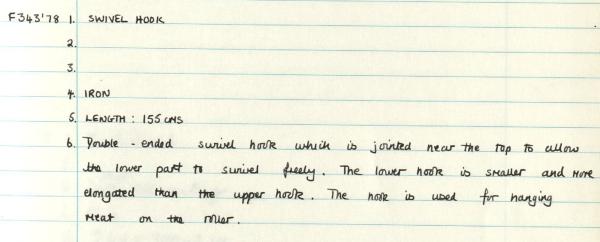 F343'78 1. SWIVEL HOOK
2.
3.
4. IRON
5. LENGTH: 155 CMS
6. Double-ended swivel hook which is jointed near the top to allow
the lower part to swivel freely. The lower hook is smaller and more
elongated than the upper hook. The hook is used for hanging
meat on the roller.